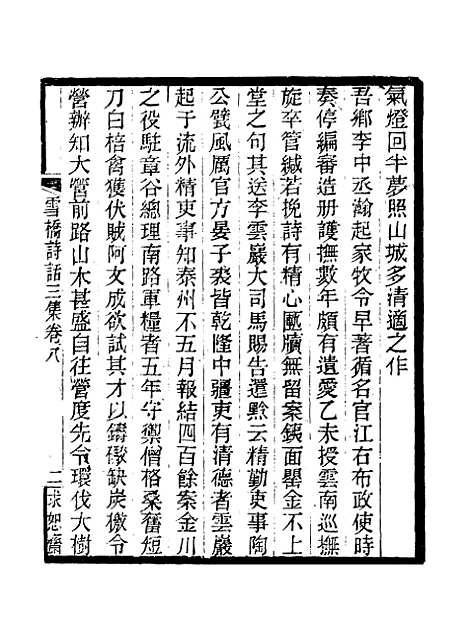 氣燈回半夢照山城多清適之作
吾鄉李中丞瀚起家牧令早著循名官江右布政使時
奏停編審造册護撫數年頗有遺愛乙未授雲南巡撫
旋卒管緘若挽詩有精心匭牘無留案鐵面罌金不上
堂之句其送李雲巖大司馬賜告還黔云精勤吏事陶
公甓風厲官方晏子裘皆乾隆中疆吏有清德者雲巖
起于流外精吏事知泰州不五月報結四百餘案金川
之役駐章谷總理南路軍糧者五年守禦僧格桑奮短
刀白棓禽獲伏賊阿文成欲試其才以鑄礮缺炭檄令
營辦知大營前路山木甚盛自往營度先令環伐大樹
雪橋詩話三集卷八
二求恕齋